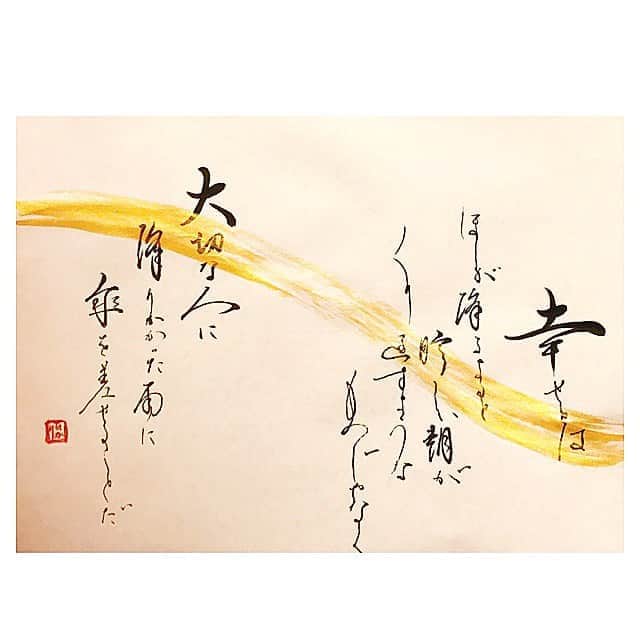 幸せとは
ほしが降るよると
眩しい朝が
くり返すような
ものじゃなく
大切な人に
降りかかった雨に
傘を差せることだ